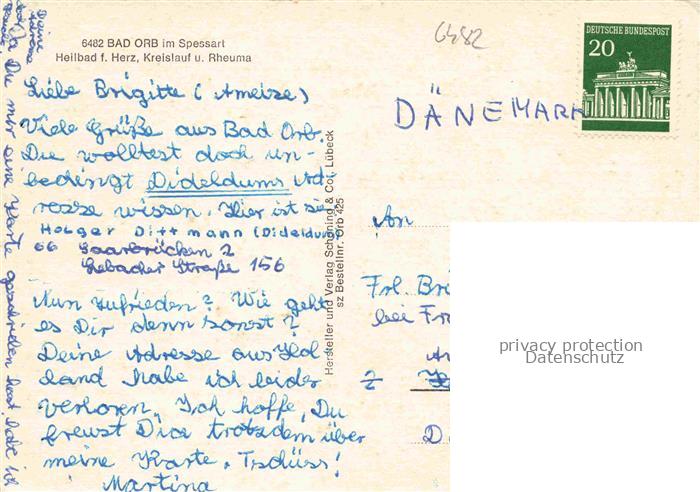 6482 BAD ORB im Spessart
Heilbad f. Herz, Kreislauf u. Rheuma
6482
DEUTSCHE BUNDESPOST
20
DÄNEMARK
Liebe Brigitte (Ameise)
Viele Grüße aus Bad Orb.
Du wolltest doch un-
bedingt Dideldums Ad-
resse wissen. Hier ist sie:
Holger Dittmann (Dideldum)
66 Saarbrücken 2
Lebacher Straße 156
Nun zufrieden? Wie geht
es Dir denn sonst?
Deine Adresse aus Hol-
land habe ich leider
verloren. Ich hoffe, Du
freust Dich trotzdem über
meine Karte. Tschüss!
Martina
Deine Adresse
Da Du mir eine Karte geschrieben hast, habe ich
Hersteller und Verlag Schöning & Co., Lübeck
sz Bestellnr. Orb 425
An
Frl. Bri
bei Fra
2
D
privacy protection
Datenschutz